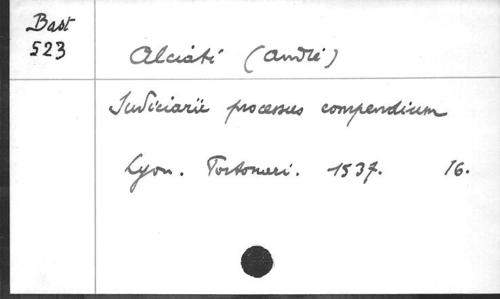 Bast
523
Alciati (André)
Judiciarii processus compendium
Lyon. Portonari. 1537. 16.